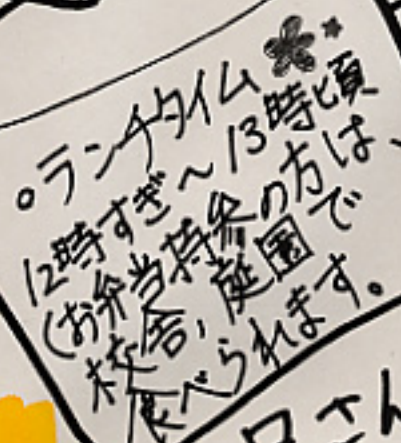 ○ランチタイム
12時すぎ～13時頃
(お弁当持参の方は、
校舎、庭園で
食べられます。
さん